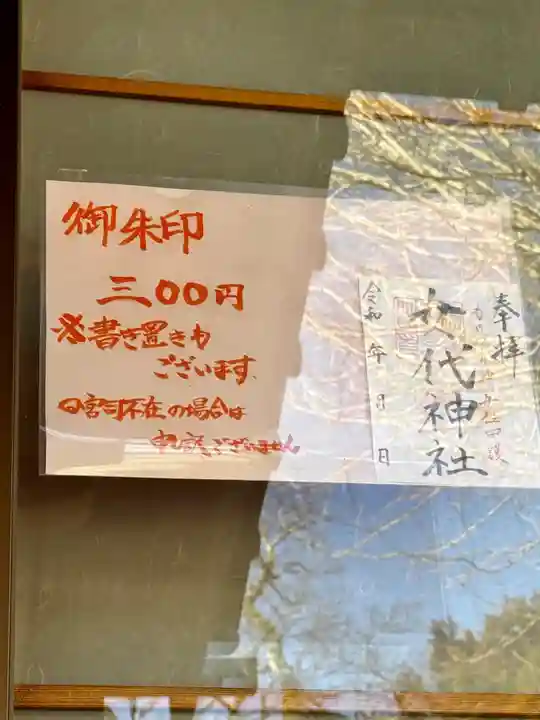 御朱印
三〇〇円
※書き置きも
ございます
〇宮司不在の場合は
申し訳ございません
奉拝
代神社
令和 年 月 日